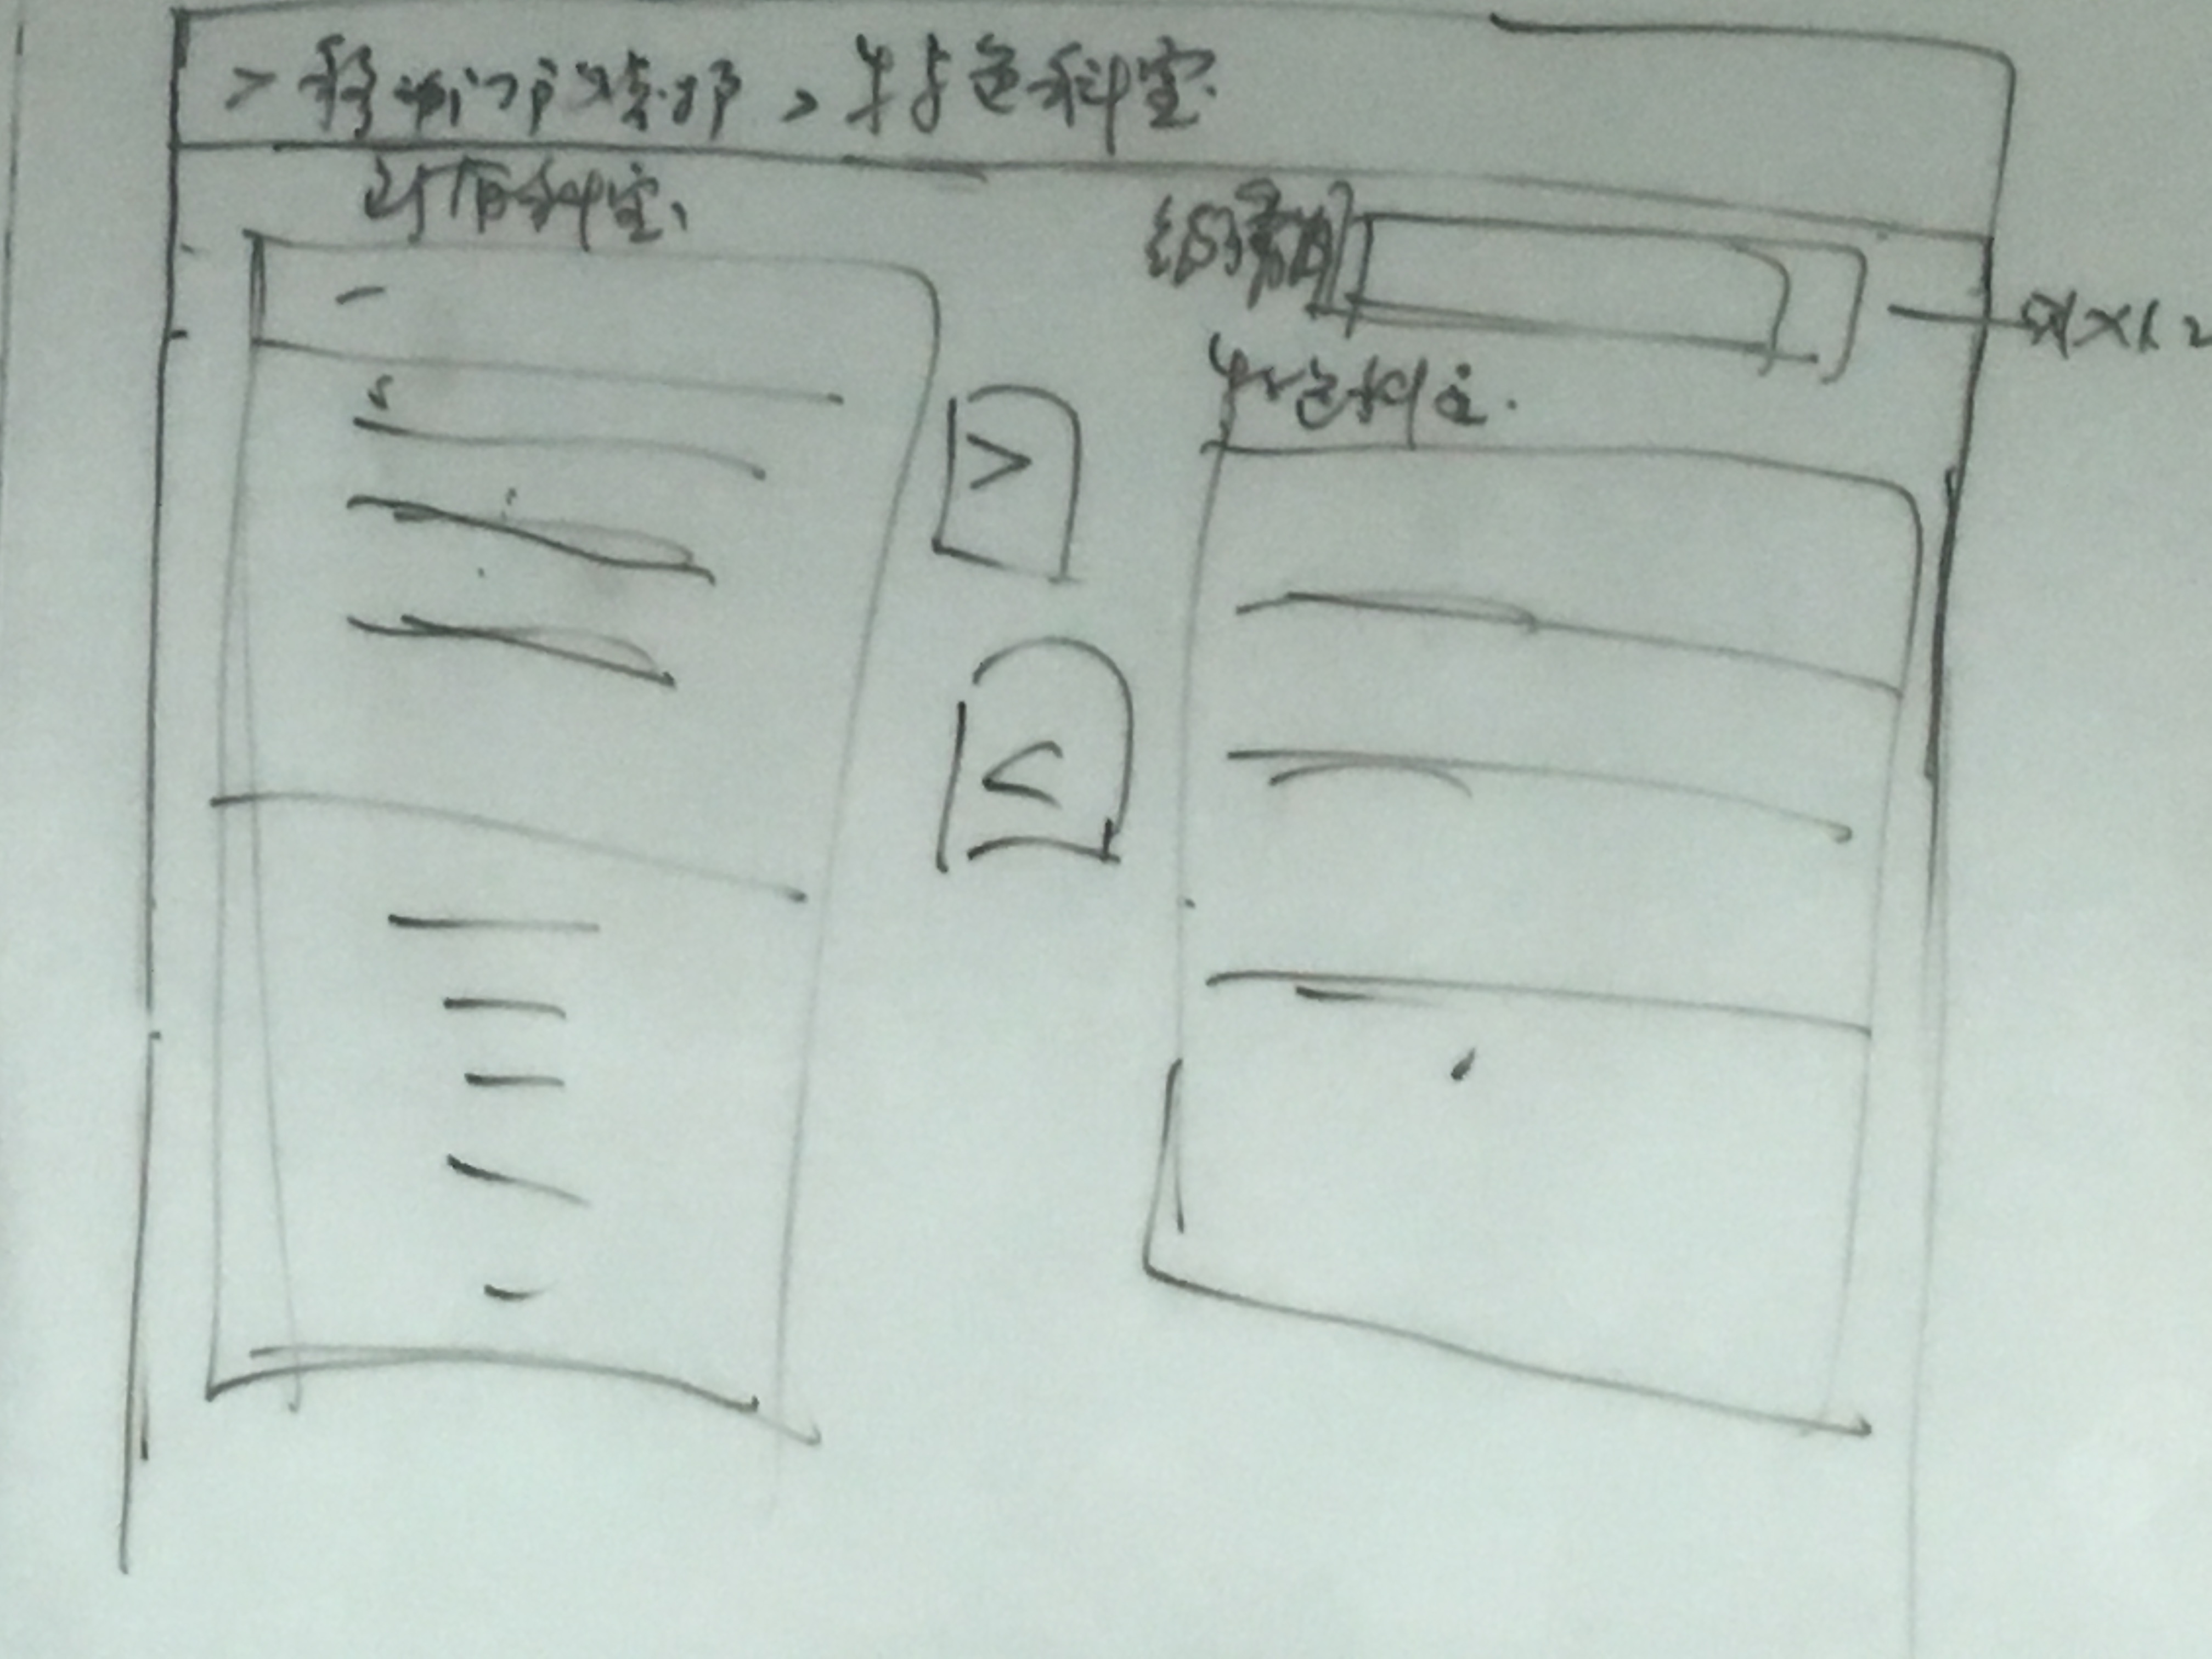 > 移动门户维护 > 特色科室
所有科室
>
特色科室
<